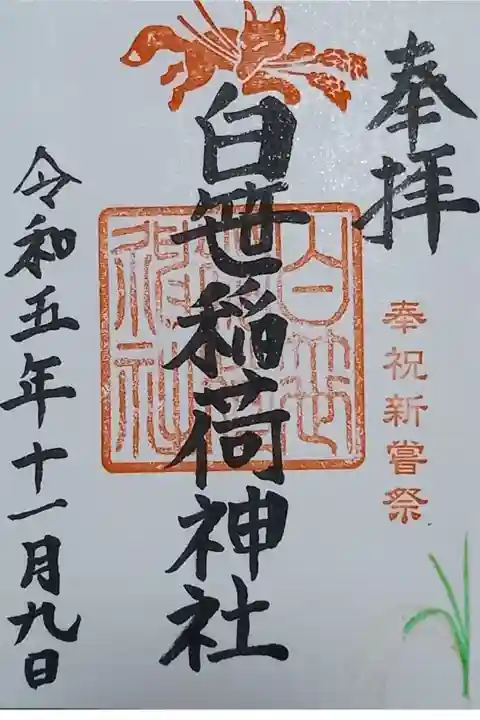 奉拝
奉祝新嘗祭
白笹稲荷神社
白笹
稲荷
神社
令和五年十一月九日